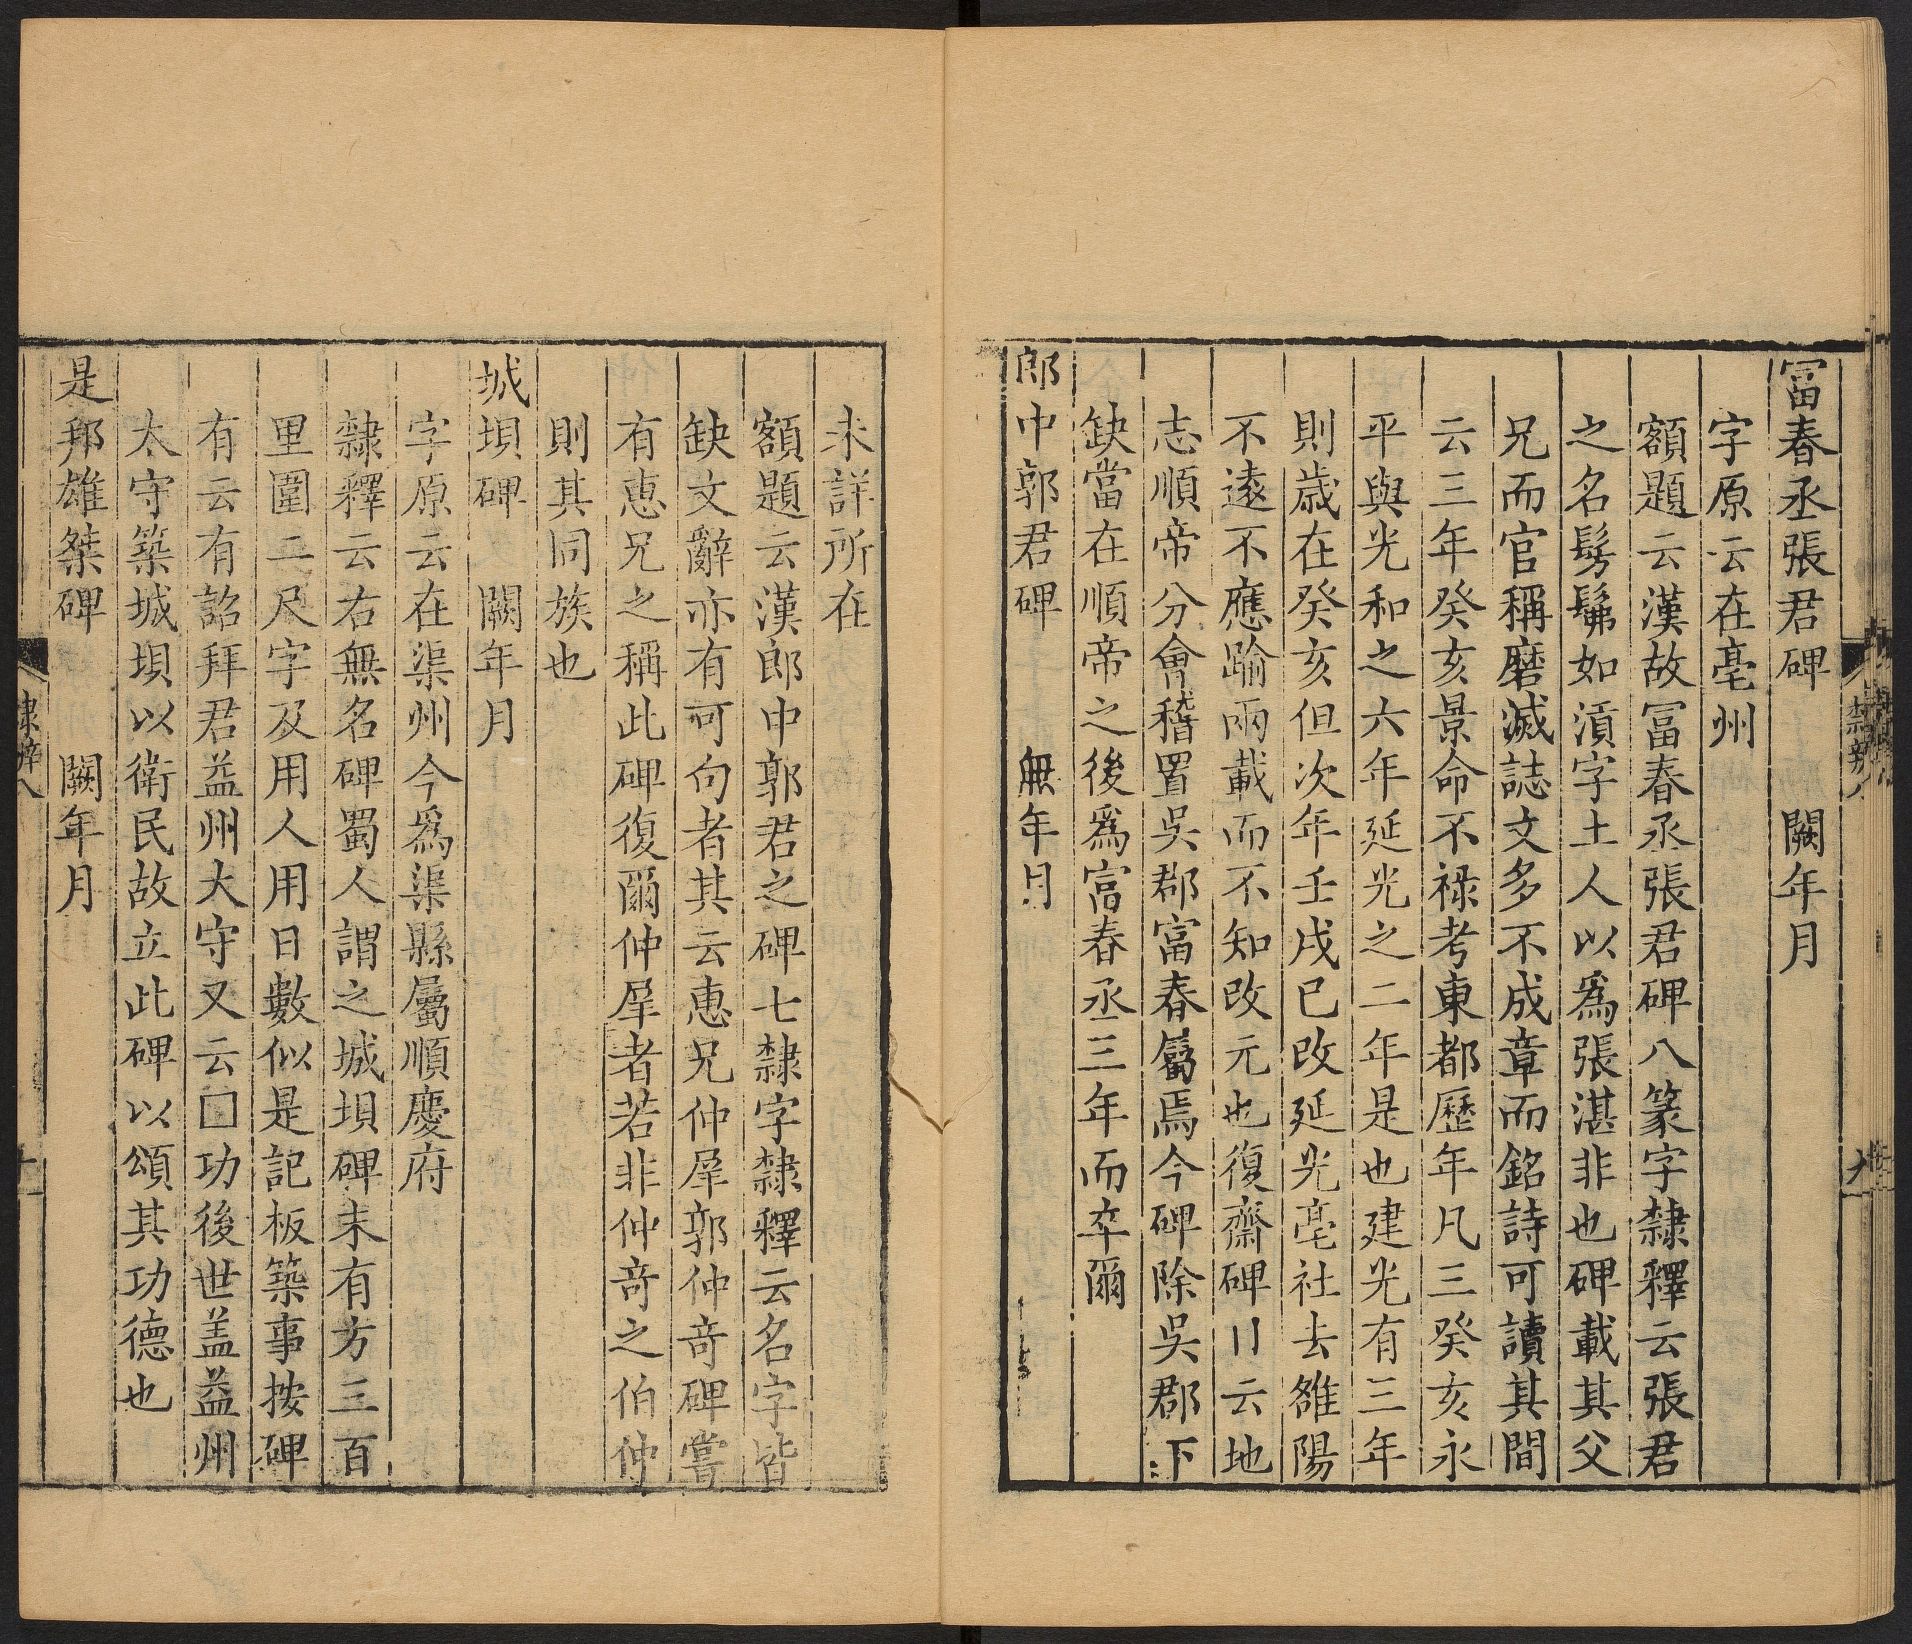 冨春丞張君碑　闕年月
字原云在亳州
額題云漢故冨春丞張君碑八篆字隸釋云張君
之名髣髴如湏字土人以爲張湛非也碑載其父
兄而官稱磨滅誌文多不成章而銘詩可讀其間
云三年癸亥景命不祿考東都歷年凡三癸亥永
平與光和之六年延光之二年是也建光有三年
則歲在癸亥但次年壬戌已改延光亳社去雒陽
不遠不應踰兩載而不知改元也復齋碑目云地
志順帝分會稽置吳郡富春屬焉今碑除吳郡下
缺當在順帝之後爲富春丞三年而卒爾
郎中郭君碑　無年月
未詳所在
額題云漢郎中郭君之碑七隸字隸釋云名字皆
缺文辭亦有可句者其云惠兄仲犀郭仲奇碑嘗
有惠兄之稱此碑復爾仲犀者若非仲奇之伯仲
則其同族也
城垻碑　闕年月
字原云在渠州今爲渠縣屬順慶府
隸釋云右無名碑蜀人謂之城垻碑末有方三百
里圍二尺字及用人用日數似是記板築事按碑
有云有詔拜君益州大守又云□功後世盖益州
太守築城垻以衛民故立此碑以頌其功德也
是邦雄桀碑　闕年月
隸辨八